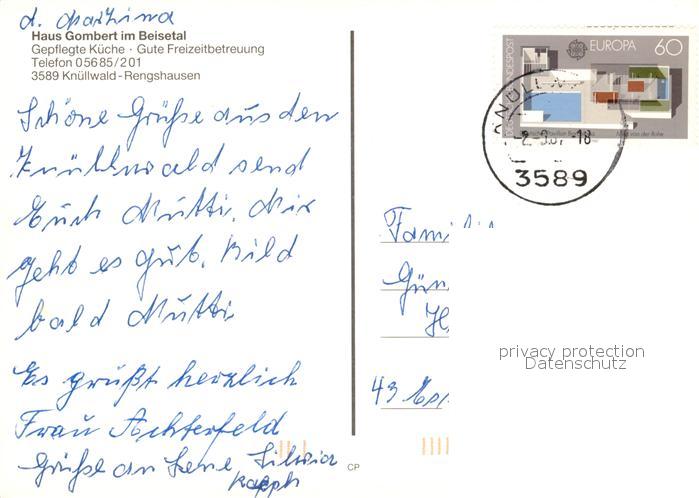 d. Martina
Haus Gombert im Beisetal
Gepflegte Küche · Gute Freizeitbetreuung
Telefon 05685/201
3589 Knüllwald-Rengshausen
Schöne Grüße aus den
Knüllwald send
Euch Mutti. Mir
geht es gut. Bild
bald Mutti.
Es grüßt herzlich
Frau Achterfeld
Grüße an Lene Silvia
CP
BUNDESPOST
EUROPA 60
Mies van der Rohe
3589
Fami
Gün
43 Ess
privacy protection
Datenschutz